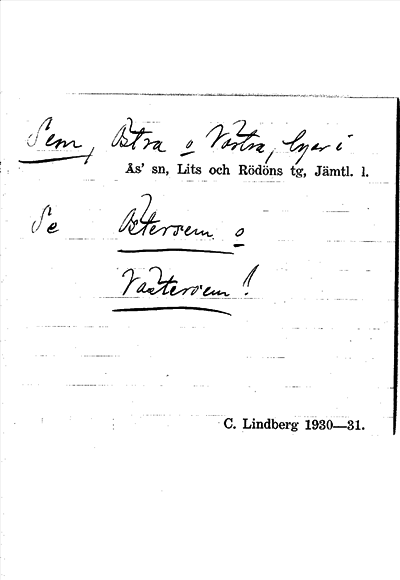 Sem, Östra o Västra, byar i
Ås' sn, Lits och Rödöns tg, Jämtl. l.
Se Östersem o
Västersem!
C. Lindberg 1930—31.